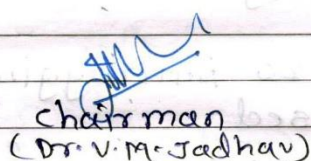 chairman
(Dr. V. M. Jadhav)